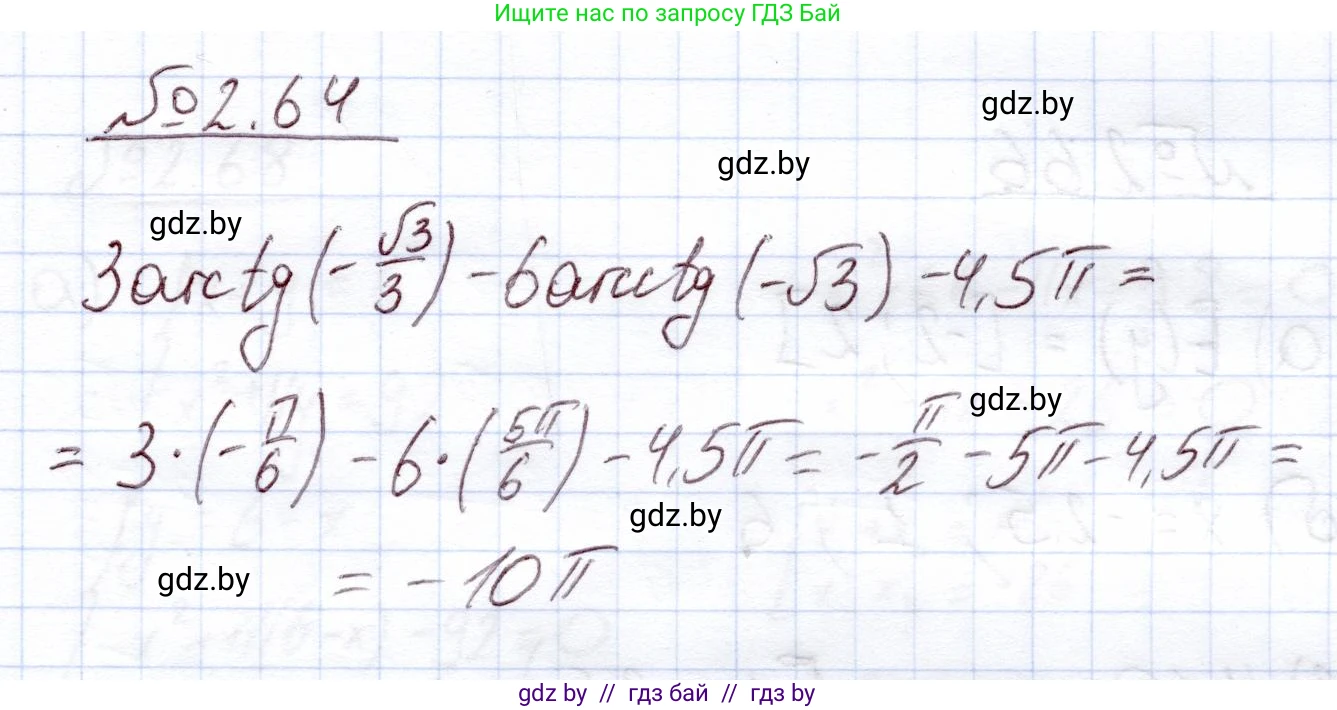 Ищите нас по запросу ГДЗ Бай
№2.64
gdz.by
gdz.by
gdz.by
3arctg(-√3/3) - 6arcctg(-√3) - 4,5π =
gdz.by
= 3·(-π/6) - 6·(5π/6) - 4,5π = -π/2 - 5π - 4,5π =
gdz.by
gdz.by
= -10π
gdz by // гдз бай // гдз by